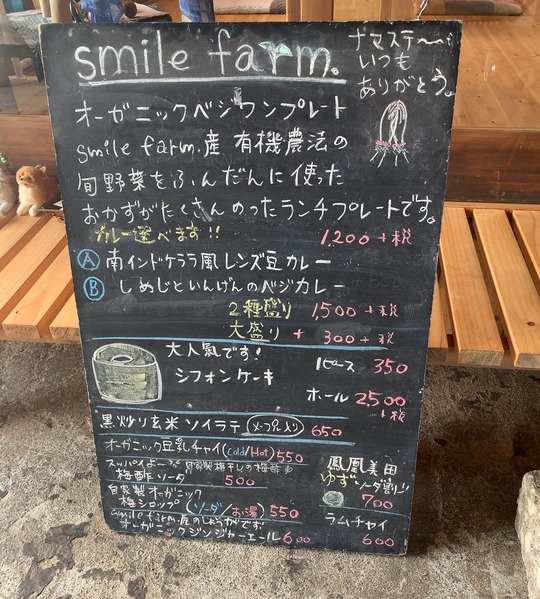 smile farm.
ナマステ〜
いつも
ありがとう。
オーガニックベジワンプレート
smile farm.産 有機農法の
旬野菜をふんだんに使った
おかずがたくさんのったランチプレートです。
カレー選べます!! 1,200+税
Ⓐ 南インドケララ風レンズ豆カレー
Ⓑ しめじといんげんのベジカレー
2種盛り 1,500+税
大盛り + 300+税
大人氣です!
シフォンケーキ
1ピース 350
ホール 2,500
+税
黒炒り玄米ソイラテ(メープル入り) 650
オーガニック豆乳チャイ(Cold/Hot) 550
スッパイよー 自家製梅干しの梅酢
梅酢ソーダ 500
自家製オーガニック
梅シロップ(ソーダ/お湯) 550
smile farm.産のしょうがです!
オーガニックジンジャーエール 600
鳳凰美田
ゆずソーダ割り
700
ラムチャイ
600